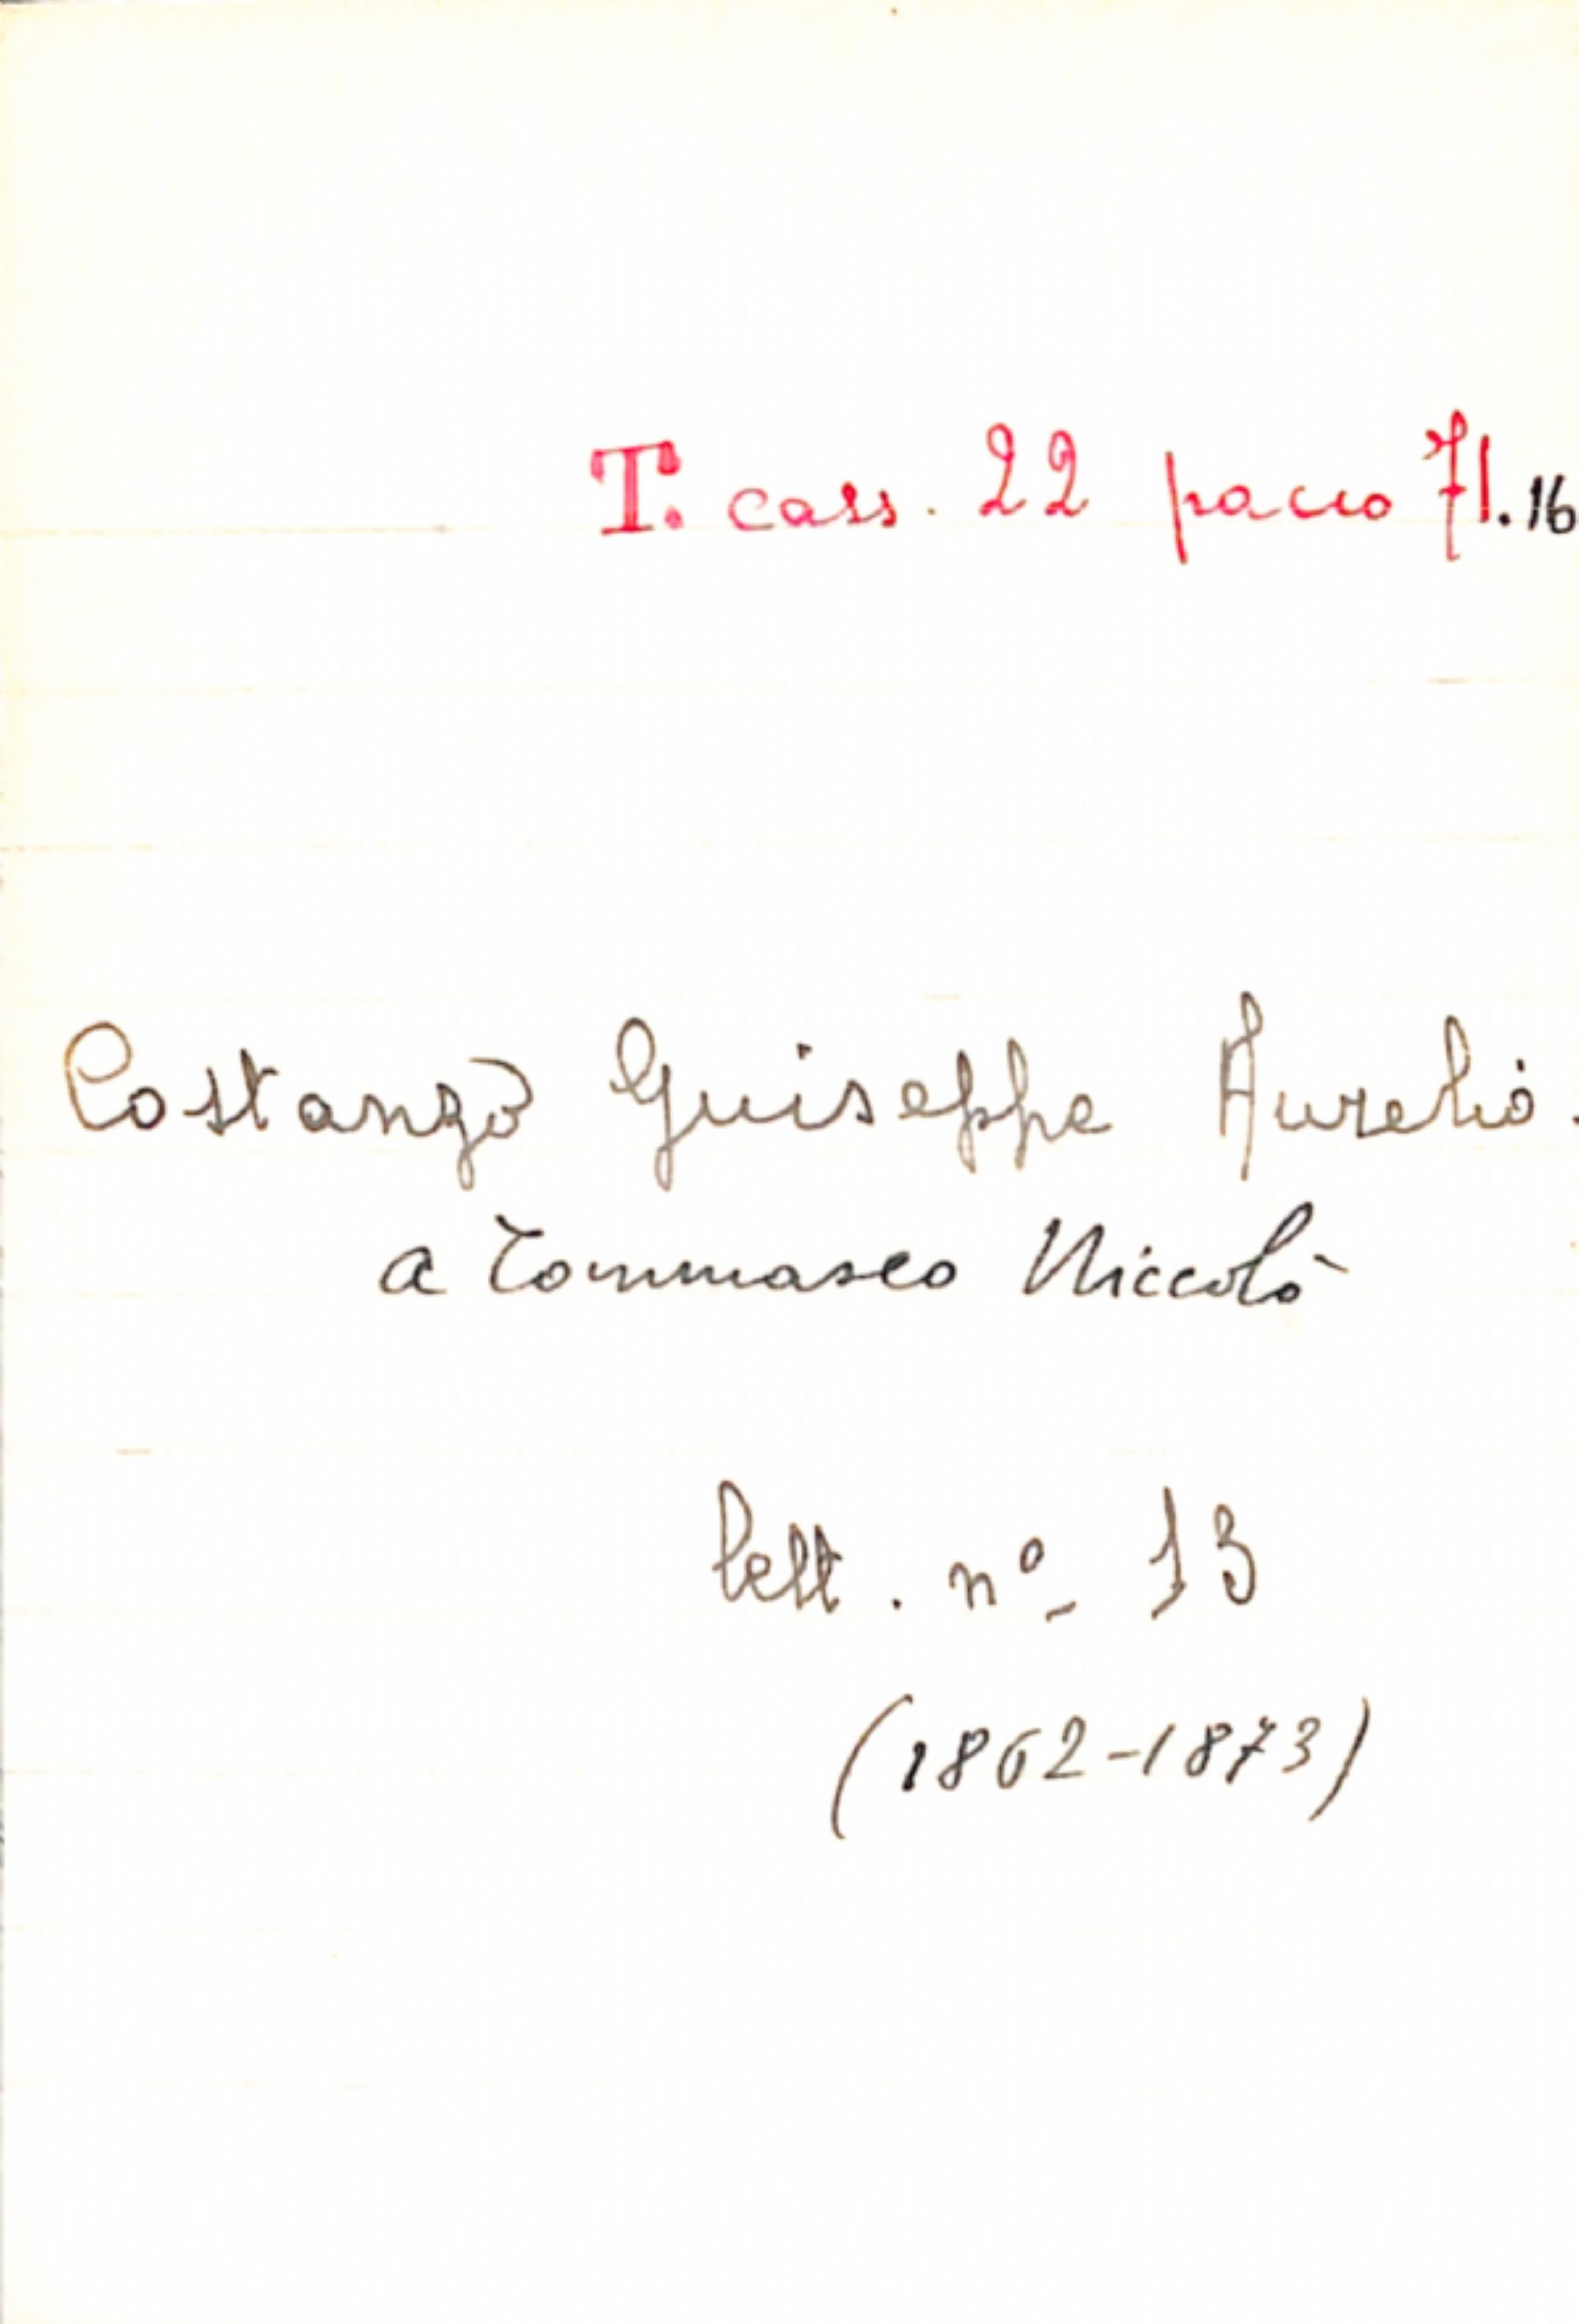 T. cass. 22 pacco 71.16
Costanzo Guiseppe Aurelio.
a Tommaseo Niccolò
lett. nº 13
(1862-1873)